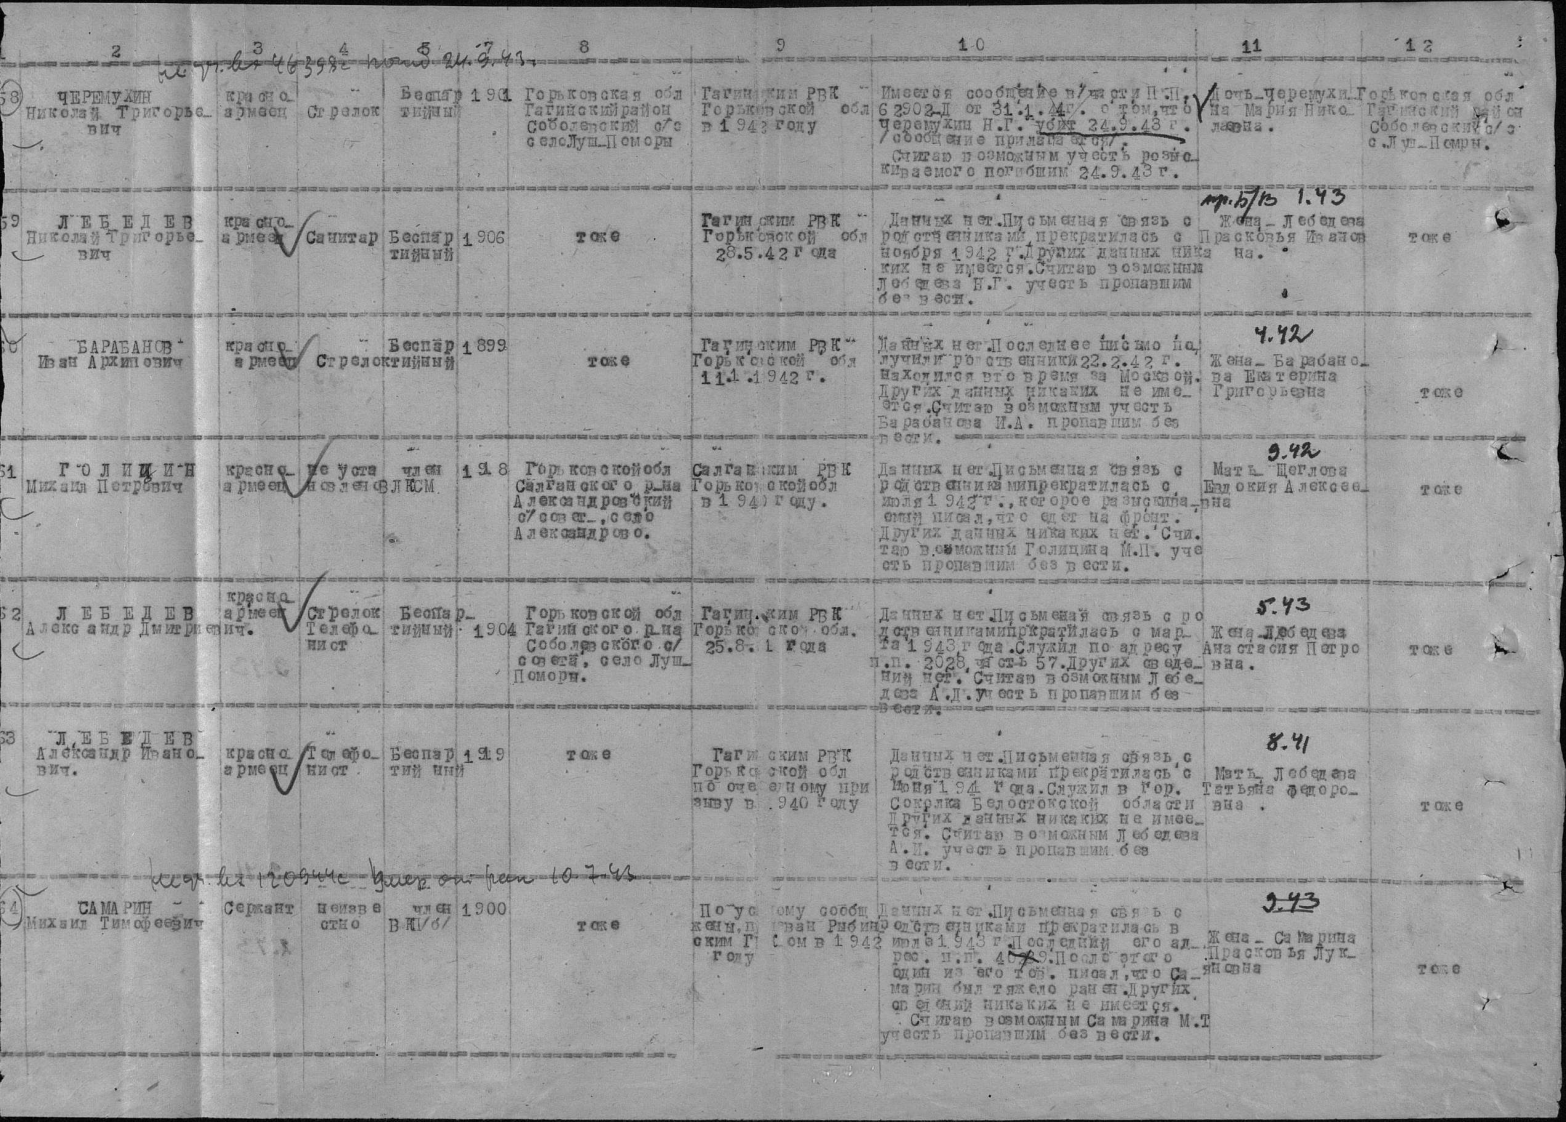 2 3 4 5 7 8 9 10 11 12
58
ЧЕРЕМУХИН
Николай Григорье_
вич
красно_
армеец
Стрелок
Беспар
тийный
1901
Горьковская обл
Гагинский район
Соболевский с/с
село Луш_Поморы
Гагинским РВК
Горьковской обл
в 1942 году
Имеется сообщение в/части П.П.
62902-Д от 31.1.44г. о том, что
Черемухин Н.Г. убит 24.9.43 г.
/сообщение прилагается/.
Считаю возможным учесть розыс_
киваемого погибшим 24.9.43 г.
Дочь_Черемухи_
на Мария Нико_
лаевна.
Горьковская обл
Гагинский район
Соболевский с/с
с.Луш_Помры.
59
ЛЕБЕДЕВ
Николай Григорье_
вич
красно_
армеец
Санитар
Беспар
тийный
1906
тоже
Гагинским РВК
Горьковской обл
28.5.42 года
Данных нет.Письменная связь с
родственниками прекратилась с
ноября 1942 г.Других данных ника
ких не имеется.Считаю возможным
Лебедева Н.Г. учесть пропавшим
без вести.
1.43
Жена_ Лебедева
Прасковья Иванов
на.
тоже
60
БАРАБАНОВ
Иван Архипович
красно_
армеец
Стрелок
Беспар
тийный
1899
тоже
Гагинским РВК
Горьковской обл
11.1.1942 г.
Данных нет.Последнее письмо по_
лучили родственники 22.2.42 г.
Находился в то время за Москвой.
Других данных никаких не име_
ется.Считаю возможным учесть
Барабанова И.А. пропавшим без
вести.
4.42
Жена_ Барабано_
ва Екатерина
Григорьевна
тоже
61
ГОЛИЦИН
Михаил Петрович
красно_
армеец
не уста
новлено
член
ВЛКСМ
1918
Горьковской обл
Салганского р_на
Александровский
с/совет_,село
Александрово.
Салганским РВК
Горьковской обл
в 1940 году.
Данных нет.Письменная связь с
родственниками прекратилась с
июля 1942 г.,которое разыскива_
емый писал,что едет на фронт.
Других данных никаких нет. Счи_
таю возможным Голицина М.П. уче
сть пропавшим без вести.
9.42
Мать_ Щеглова
Евдокия Алексее_
вна
тоже
62
ЛЕБЕДЕВ
Александр Дмитриевич.
красно_
армеец
Стрелок
Телефо_
нист
Беспар_
тийный
1904
Горьковской обл
Гагинского р_на
Соболевского с/
совета, село Луш_
Поморы.
Гагинским РВК
Горьковской обл.
25.8. 1 года
Данных нет.Письменая связь с ро
дственниками пркратилась с мар_
та 1943 года.Служил по адресу
п.п. 2028 часть 57.Других сведе_
ний нет. Считаю возможным Лебе_
дева А.Д.учесть пропавшим без
вести.
5.43
Жена_Лебедева
Анастасия Петро
вна.
тоже
63
ЛЕБЕДЕВ
Александр Ивано_
вич.
красно_
армеец
Телефо_
нист
Беспар
тийный
1919
тоже
Гагинским РВК
Горьковской обл
по очередному при
зыву в 1940 году
Данных нет.Письменная связь с
родственниками прекратилась с
Июня 1941 года.Служил в гор.
Соколка Белостокской области
Других данных никаких не имее_
тся. Считаю возможным Лебедева
А.И. учесть пропавшим без
вести.
8.41
Мать_ Лебедева
Татьяна Федоро_
вна.
тоже
умер от ран 10.7.43
64
САМАРИН
Михаил Тимофеевич
Сержант
неизве
стно
член
ВКП/б/
1900
тоже
По устному сообщ
жены,призван Рыбин
ским Г ом в 1942
году
Данных нет.Письменная связь с
родственниками прекратилась в
июле 1943 г.Последний его ад_
рес. п.п. После этого
один из его тов. писал,что Са_
марин был тяжело ранен.Других
сведений никаких не имеется.
Считаю возможным Самарина М.Т
учесть пропавшим без вести.
9.43
Жена_ Самарина
Прасковья Лук_
яновна
тоже